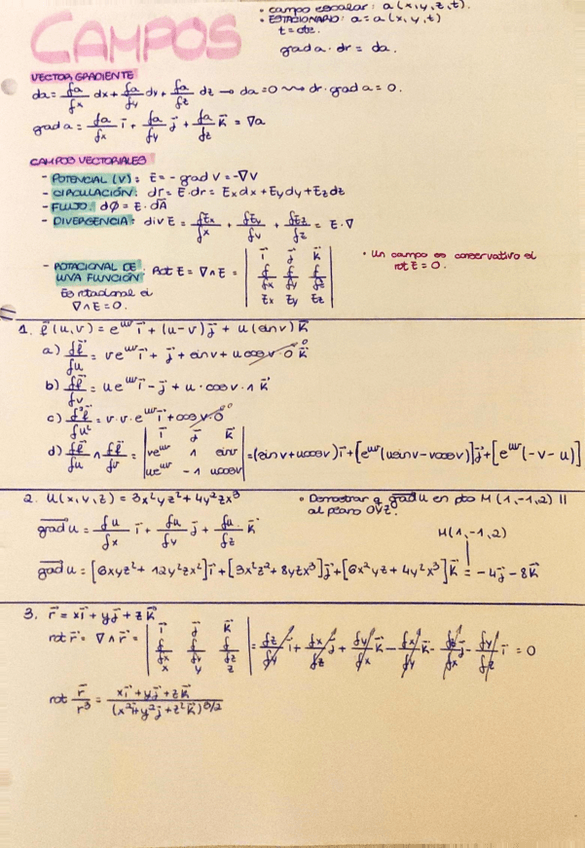 CAMPOS
• campo escalar: a(x,y,z,t).
• ESTACIONARIO: a = a(x,y,t)
t = cte.
grad a · dr = da.
VECTOR GRADIENTE
da = fa/fx dx + fa/fy dy + fa/fz dz → da = 0 ⇝ dr · grad a = 0.
grad a = fa/fx i⃗ + fa/fy j⃗ + fa/fz k⃗ = ∇a
CAMPOS VECTORIALES
- POTENCIAL (V): E = -grad V = -∇V
- CIRCULACIÓN: dΓ = E · dr = Ex dx + Ey dy + Ez dz
- FLUJO: dϕ = E · dA
- DIVERGENCIA: div E = fEx/fx + fEy/fy + fEz/fz = E · ∇
- ROTACIONAL DE UNA FUNCIÓN: Rot E = ∇ ∧ E = | i⃗ j⃗ k⃗ ; f/fx f/fy f/fz ; Ex Ey Ez |
• Un campo es conservativo si
rot E = 0.
Es rotacional si
∇ ∧ E = 0.
1. l⃗(u,v) = e^uv i⃗ + (u-v) j⃗ + u (sin v) k⃗
a) fl⃗/fu = v e^uv i⃗ + j⃗ + sin v + u cos v · 0 k⃗
b) fl⃗/fv = u e^uv i⃗ - j⃗ + u · cos v · 1 k⃗
c) f²l⃗/fu² = v · v · e^uv i⃗ + cos v · 0
d) fl⃗/fu ∧ fl⃗/fv = | i⃗ j⃗ k⃗ ; ve^uv 1 sin v ; ue^uv -1 u cos v | = (sin v + u cos v) i⃗ + [e^uv (u sin v - v cos v)] j⃗ + [e^uv (-v - u)]
2. U(x,y,z) = 3x²yz² + 4y²zx³
• Demostrar q grad u en pto M (1,-1,2) ||
al plano OYZ.
grad u = fu/fx i⃗ + fu/fy j⃗ + fu/fz k⃗
M(1,-1,2)
grad u = [6xyz² + 12y²zx²] i⃗ + [3x²z² + 8yzx³] j⃗ + [6x²yz + 4y²x³] k⃗ = -4j⃗ - 8k⃗
3. r⃗ = x i⃗ + y j⃗ + z k⃗
rot r⃗ = ∇ ∧ r⃗ = | i⃗ j⃗ k⃗ ; f/fx f/fy f/fz ; x y z | = fz/fy i⃗ + fx/fz j⃗ + fy/fx k⃗ - fx/fy k⃗ - fz/fx j⃗ - fy/fz i⃗ = 0
rot r⃗/r³ = x i⃗ + y j⃗ + z k⃗ / (x² i⃗ + y² j⃗ + z² k⃗)^3/2